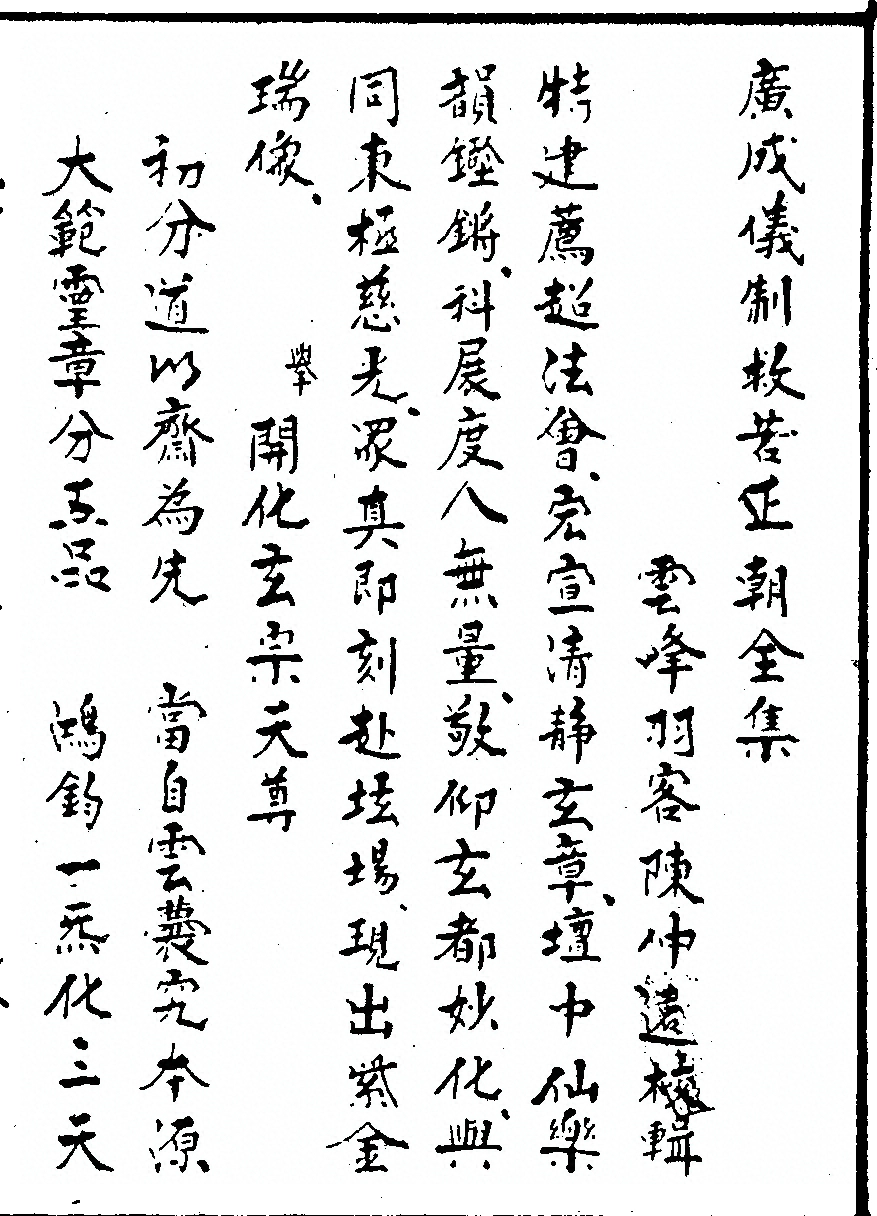 廣成儀制救苦正朝全集
雲峰羽客陳仲遠校輯
特建薦超法會、宏宣清静玄章、壇中仙樂
韻鏗鏘、科展度人無量、敬仰玄都妙化、與
同東極慈光、眾真即刻赴坛場、現出紫金
瑞像、 舉 開化玄宗天尊
初分道以齋為先 當自雲究本源
大範靈章分品 鴻鈞一炁化三天